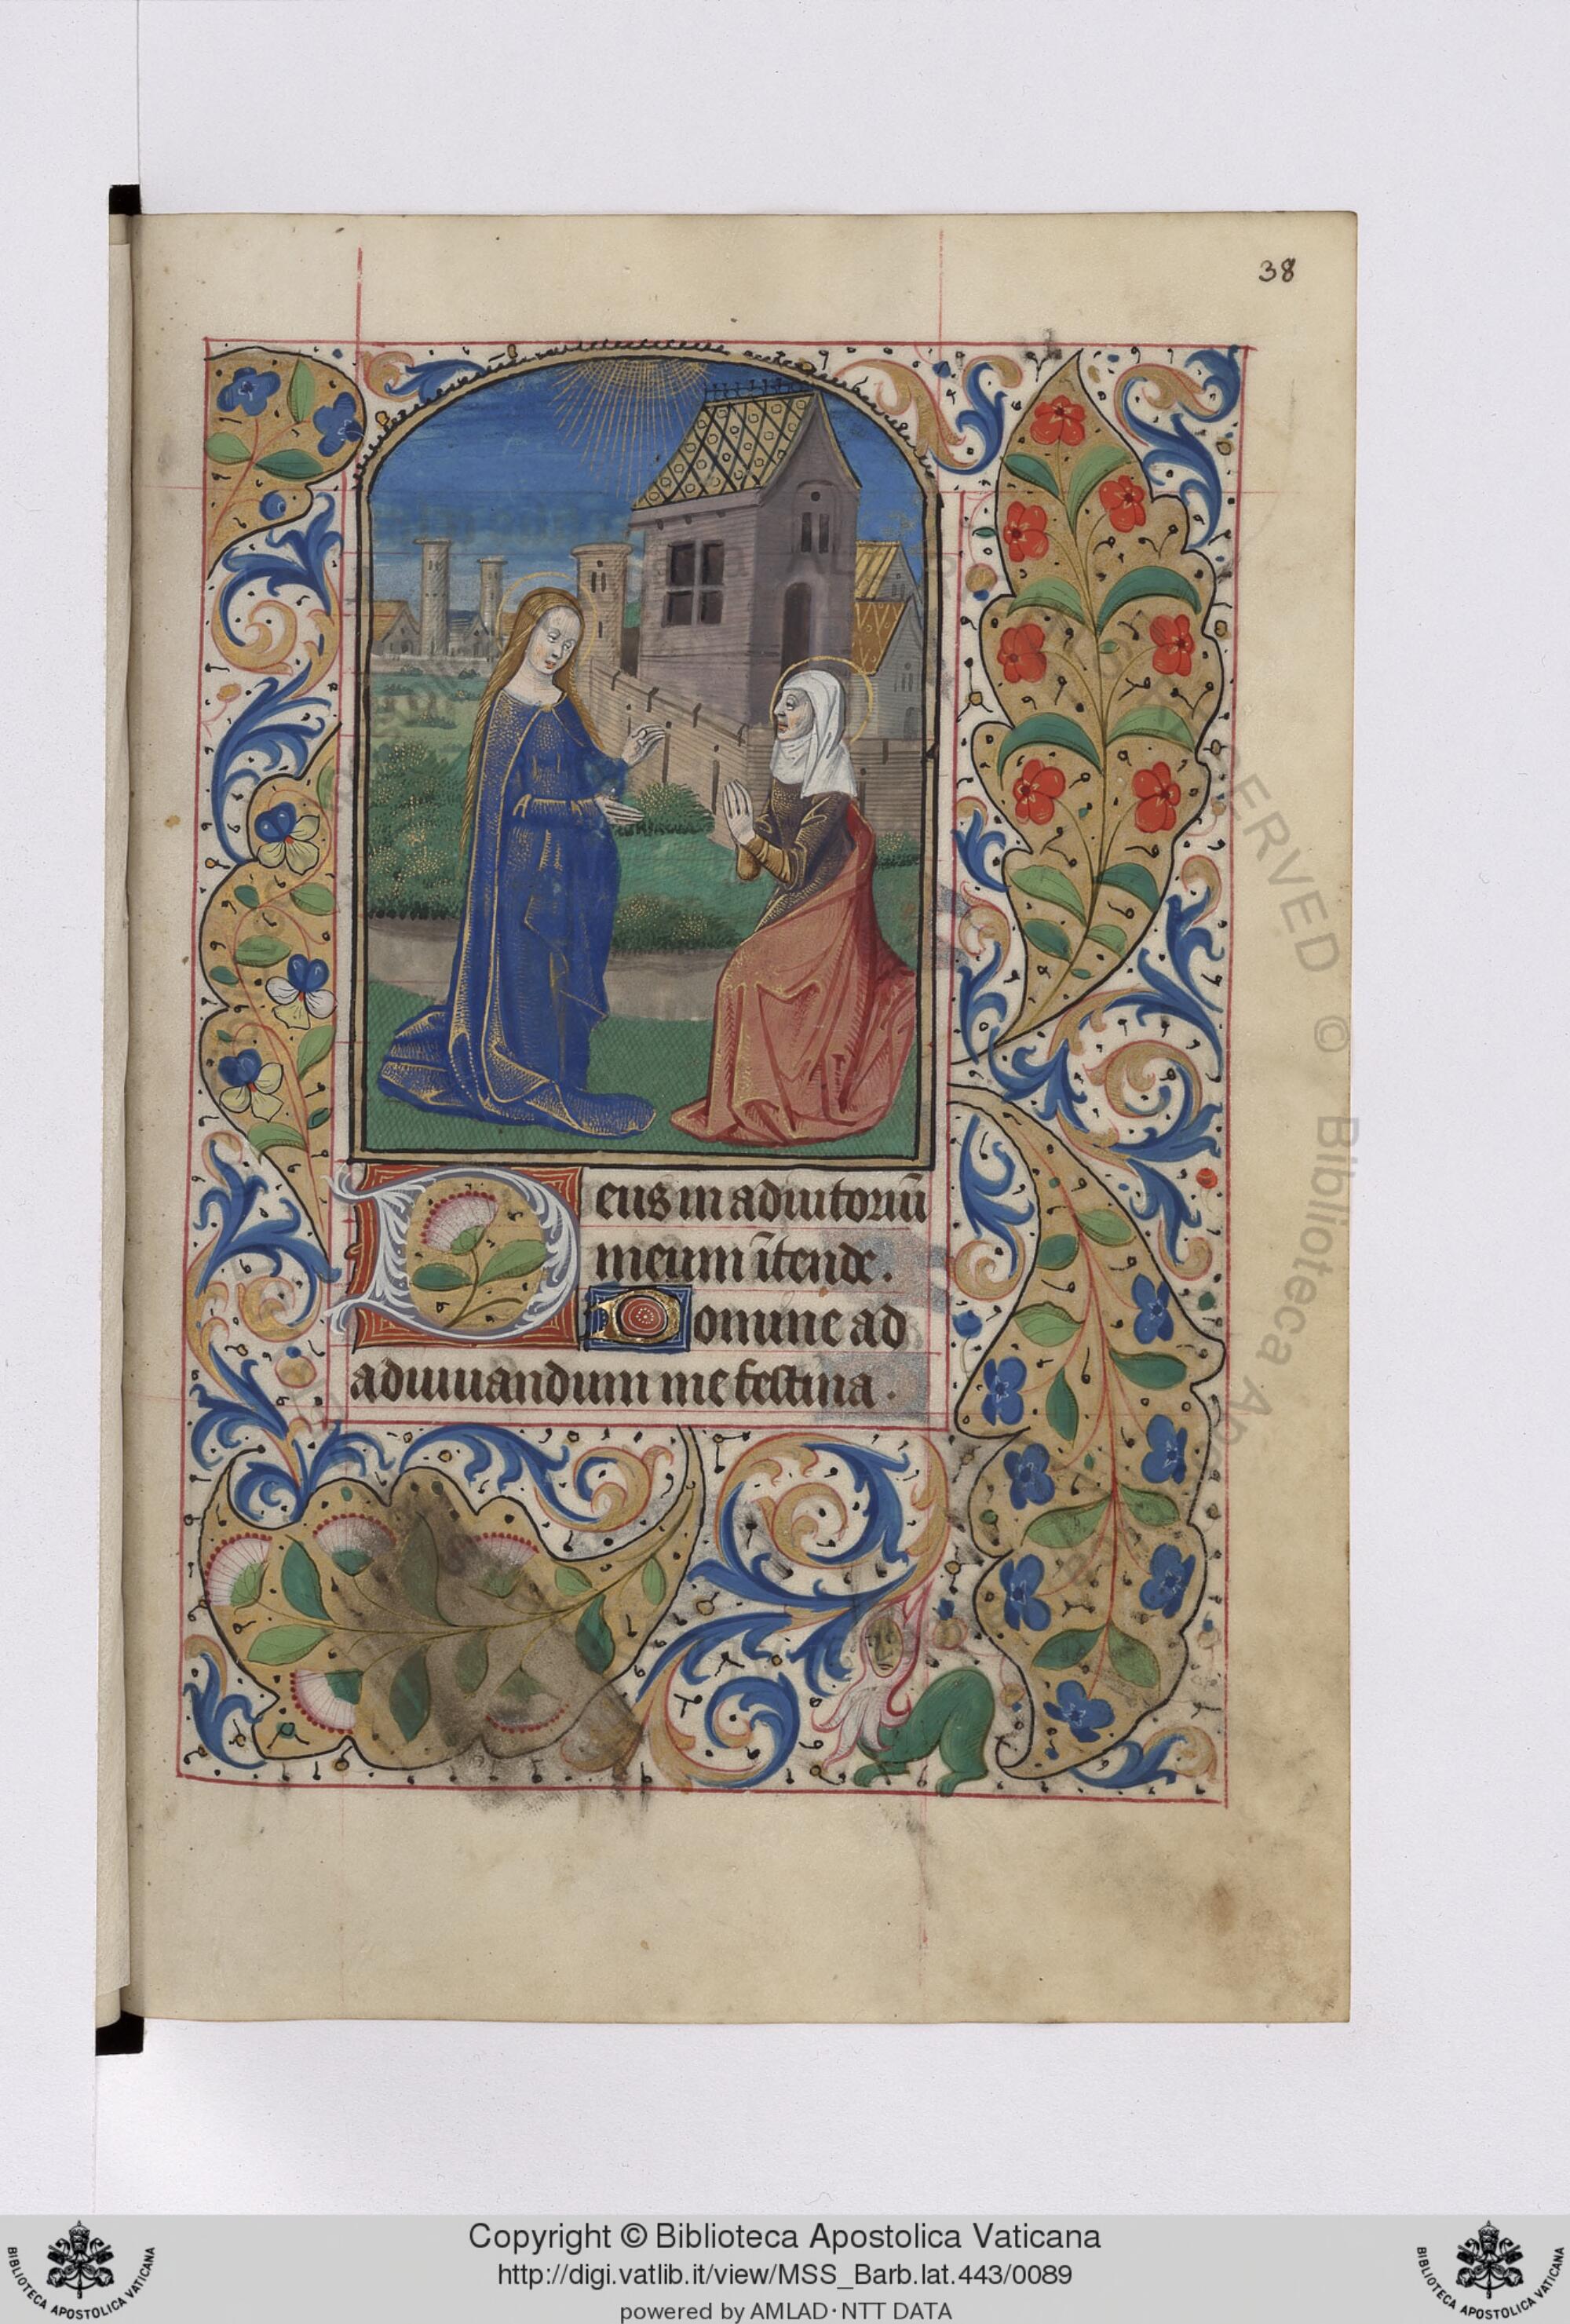 38
Deus in adiutoriū
meum ītende.
Domine ad
adiuuandum me festina.
RESERVED © Biblioteca Ap
Copyright © Biblioteca Apostolica Vaticana
http://digi.vatlib.it/view/MSS_Barb.lat.443/0089
powered by AMLAD·NTT DATA
BIBLIOTECA APOSTOLICA VATICANA
BIBLIOTECA APOSTOLICA VATICANA